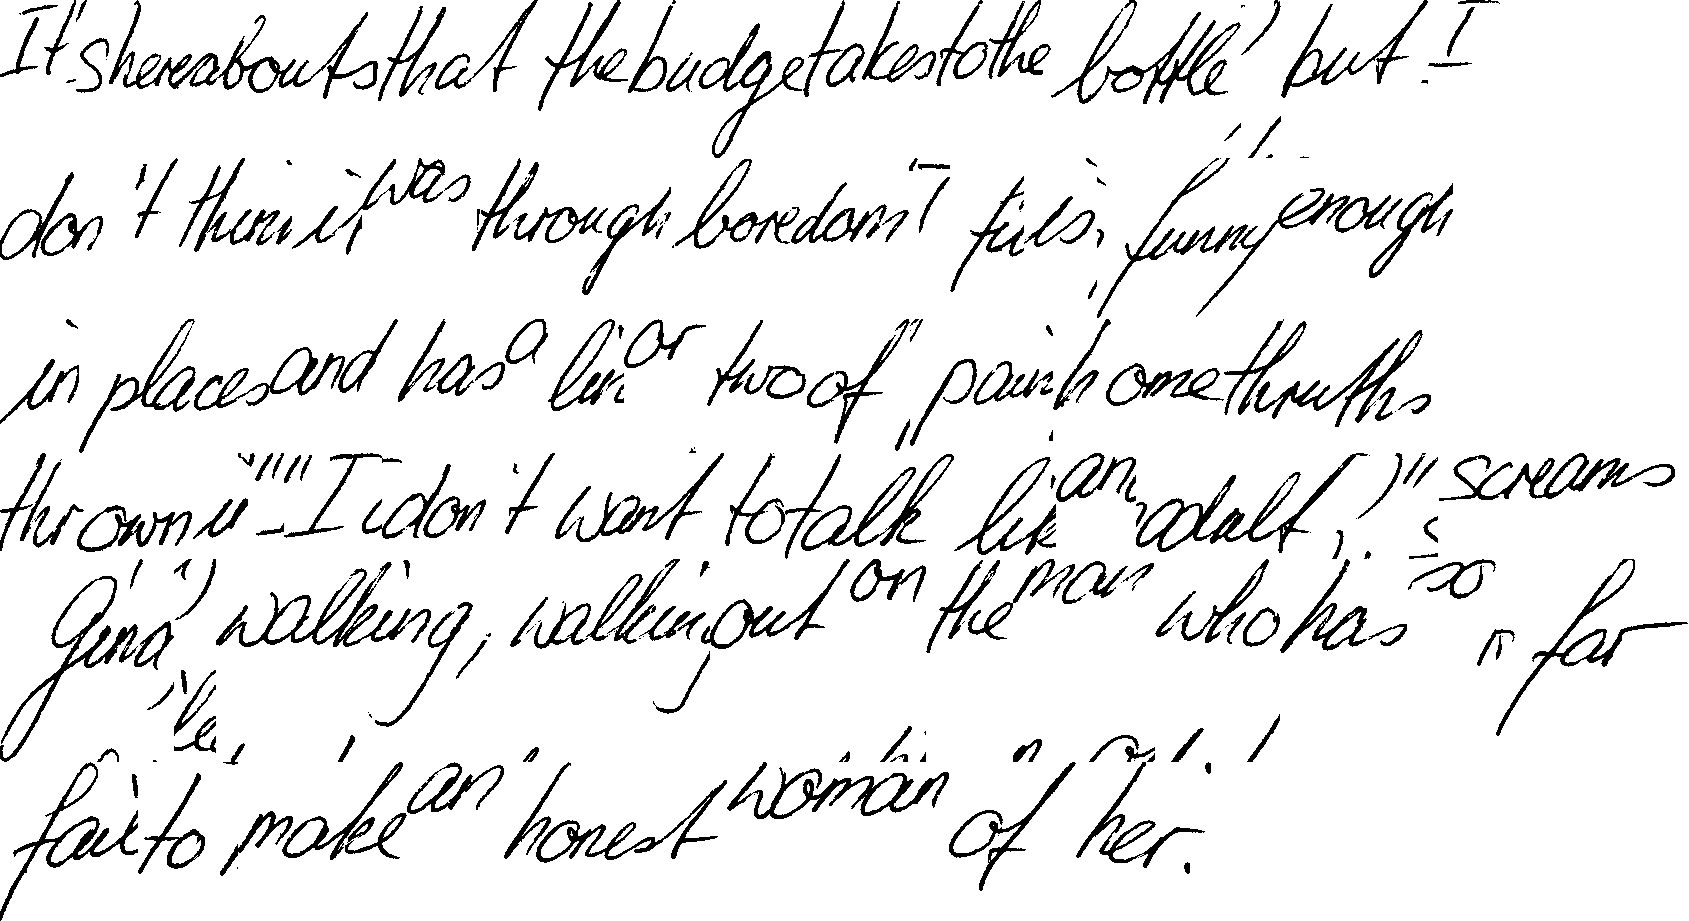 It's hereabouts that the budget takes to the bottle but I
don't think it was through boredom. It is funny enough
in places and has a line or two of pain home thruths
thrown in - I don't want to talk like an adult!" screams
Gina, walking, walking out on the man who has so far
to make an honest woman of her.